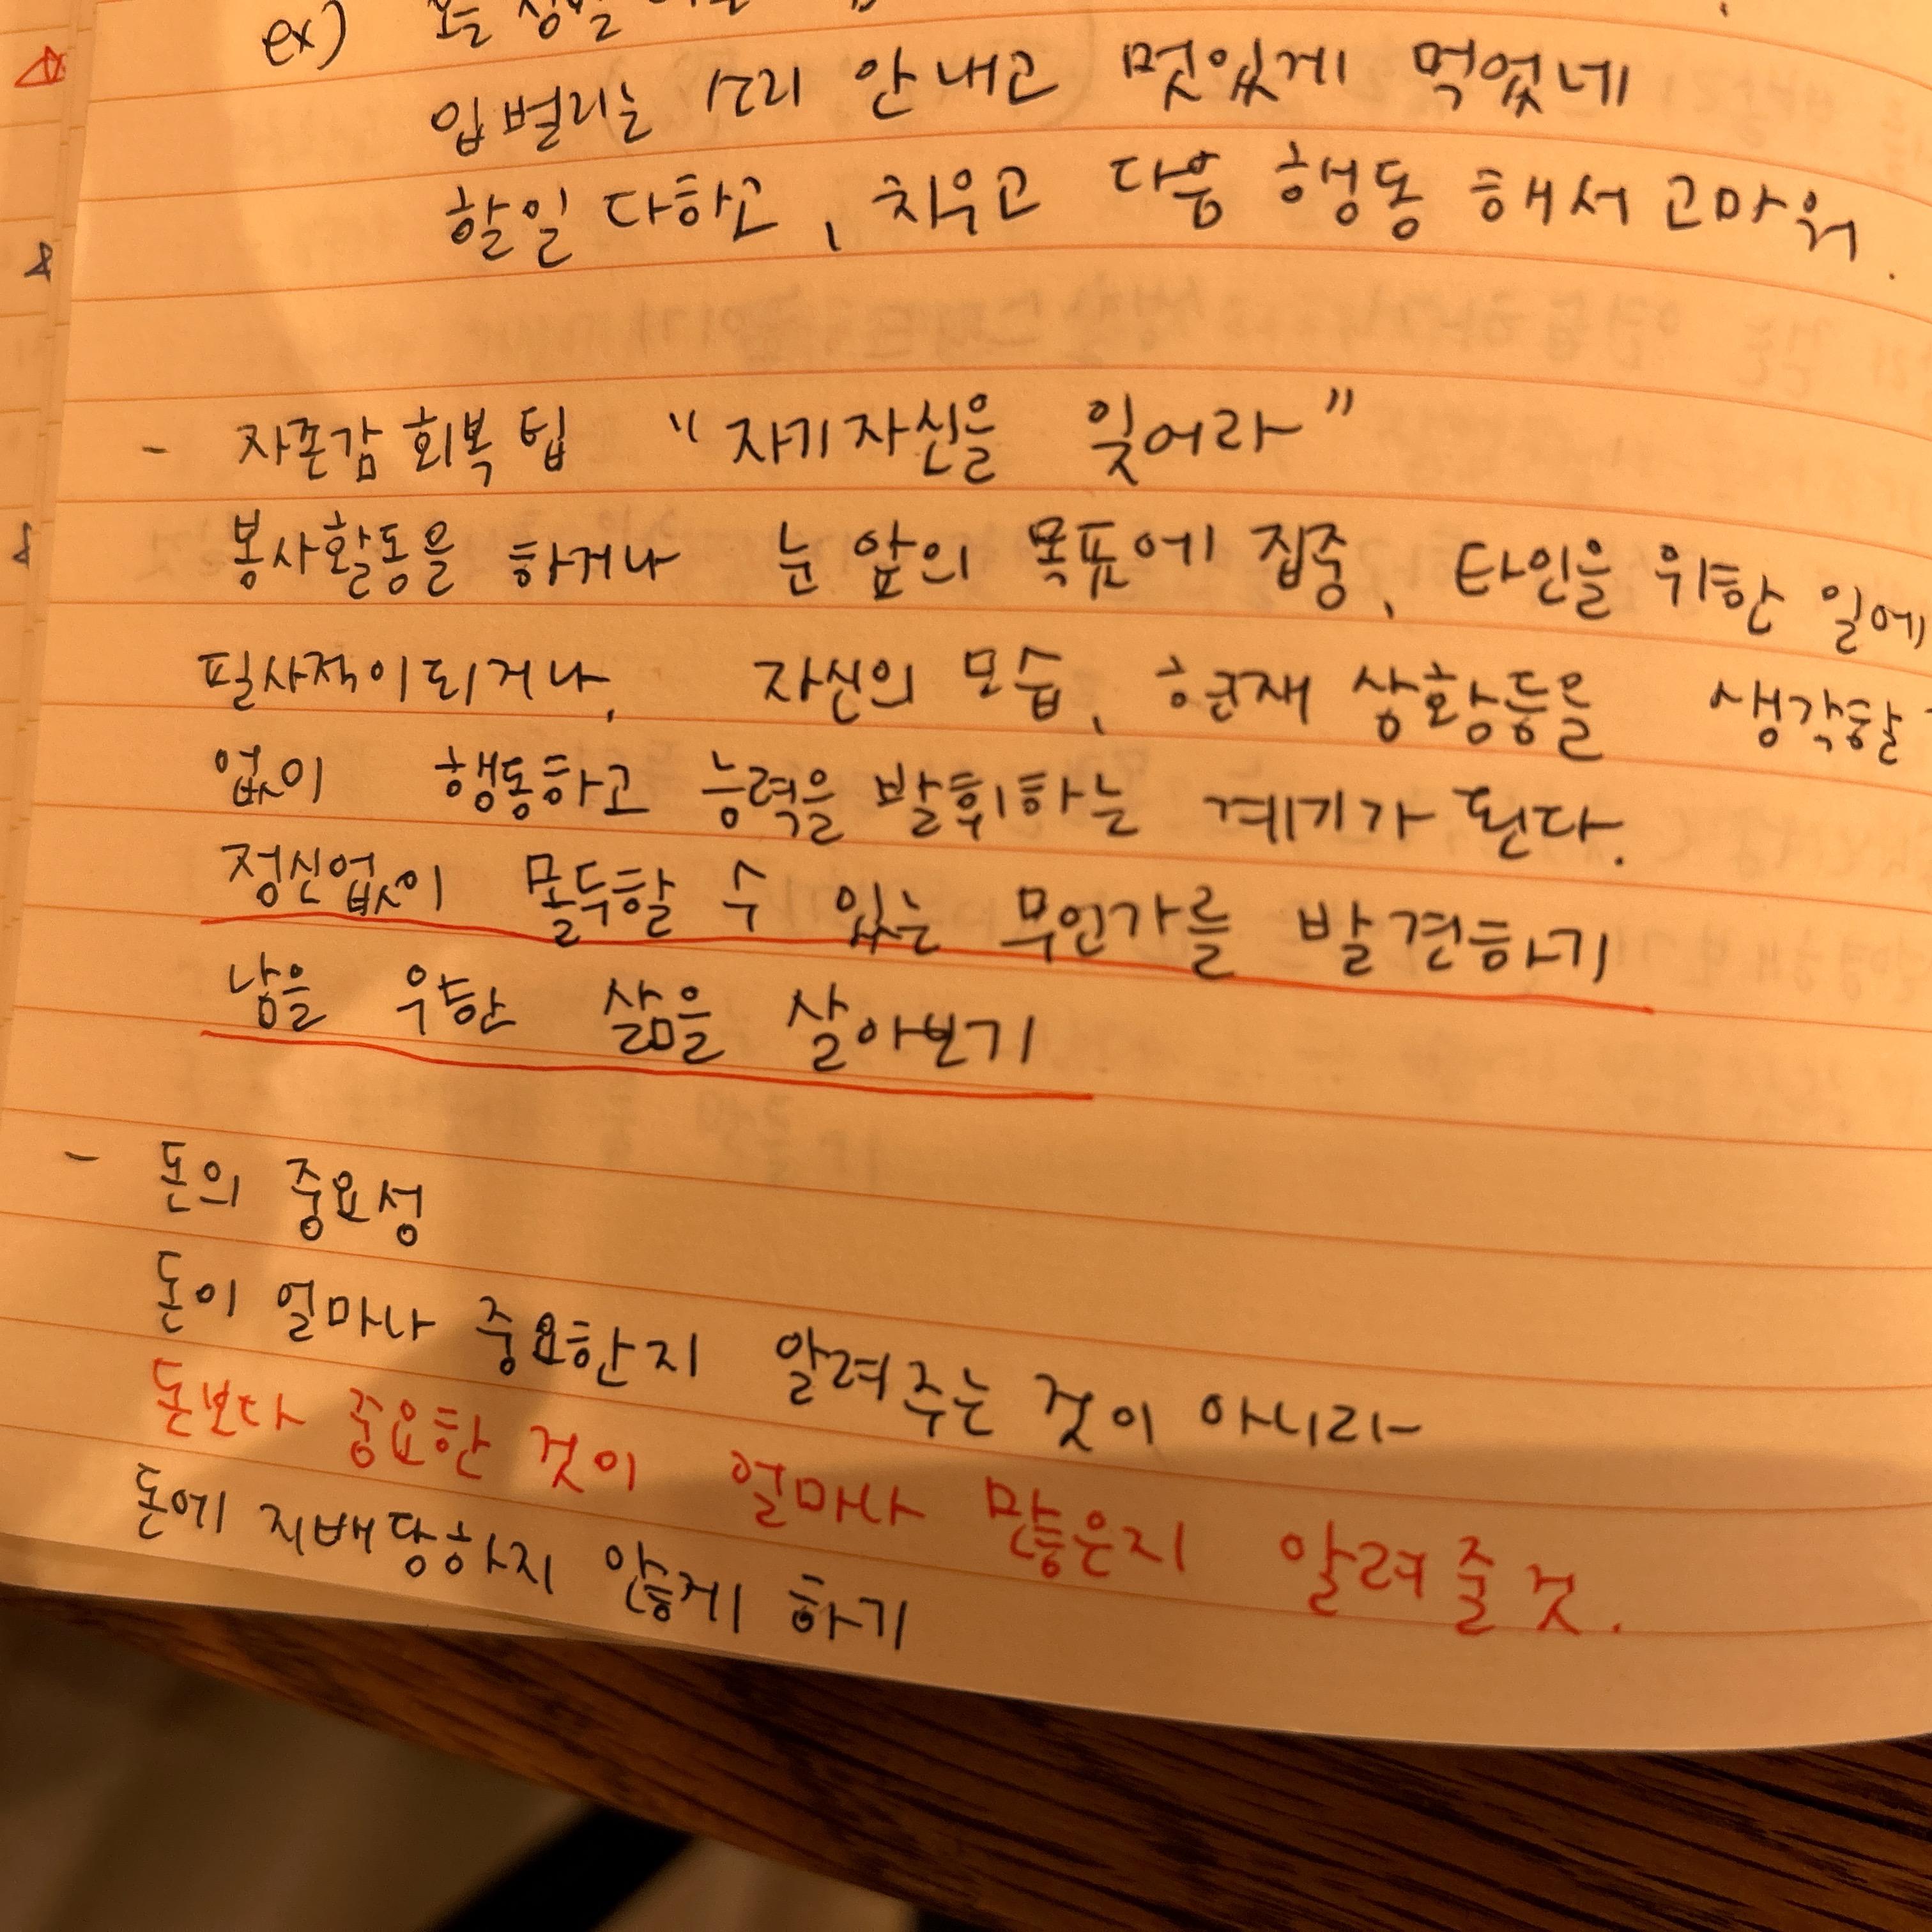 ex)
입벌리는 소리 안내고 멋있게 먹었네
할일 다하고, 치우고 다음 행동 해서 고마워.
- 자존감 회복 팁 "자기자신을 잊어라"
봉사활동을 하거나 눈 앞의 목표에 집중, 타인을 위한 일에
필사적이되거나, 자신의 모습, 현재 상황등을 생각할
없이 행동하고 능력을 발휘하는 계기가 된다.
정신없이 몰두할 수 있는 무언가를 발견하기
남을 위한 삶을 살아보기
- 돈의 중요성
돈이 얼마나 중요한지 알려주는 것이 아니라
돈보다 중요한 것이 얼마나 많은지 알려줄 것.
돈에 지배당하지 않게 하기